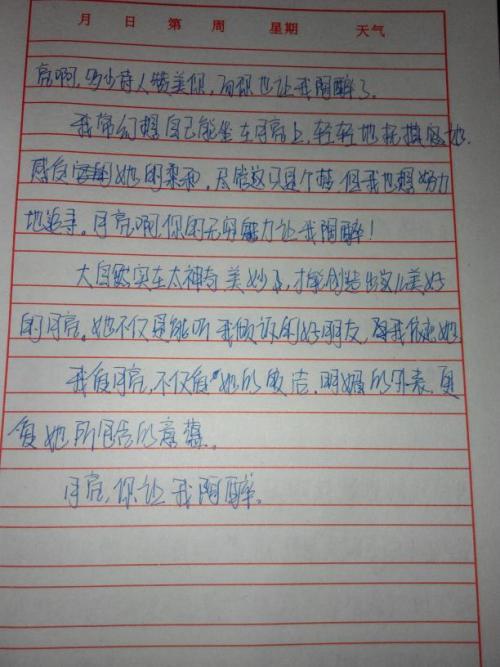 月 日 第 周 星期 天气
亮啊,多少诗人赞美你,而你也让我陶醉了。
我常幻想自己能坐在月亮上,轻轻地抚摸着她,
感受着她的柔和。尽管这只是个梦,但我也想努力
地追寻。月亮啊,你的无穷魅力让我陶醉!
大自然实在太神奇美妙了,才能创造出这么美好
的月亮。她不仅是能听我倾诉的好朋友,
我爱月亮,不仅爱她的皎洁、明媚的外表,更
爱她所包含的意蕴。
月亮,你让我陶醉。